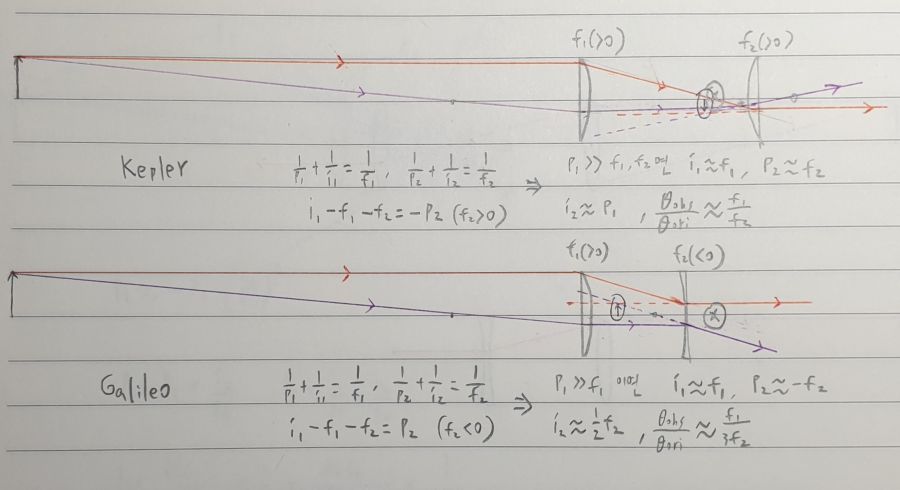 f₁(>0) f₂(>0)
Kepler
1/p₁ + 1/i₁ = 1/f₁, 1/p₂ + 1/i₂ = 1/f₂ ⇒ p₁ >> f₁, f₂ 이므로 i₁ ≈ f₁, p₂ ≈ f₂
i₁ - f₁ - f₂ = -p₂ (f₂>0) i₂ ≈ p₁, θobs/θori ≈ f₁/f₂
f₁(>0) f₂(<0)
Galileo
1/p₁ + 1/i₁ = 1/f₁, 1/p₂ + 1/i₂ = 1/f₂ ⇒ p₁ >> f₁ i₁ ≈ f₁, p₂ ≈ -f₂
i₁ - f₁ - f₂ = p₂ (f₂<0) i₂ ≈ 1/2 f₂, θobs/θori ≈ f₁/3f₂